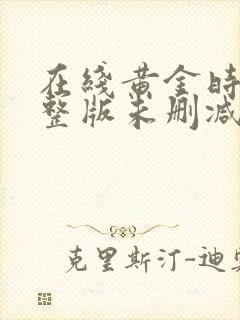 在綫黄金时
整版未删减
克里斯汀-迪